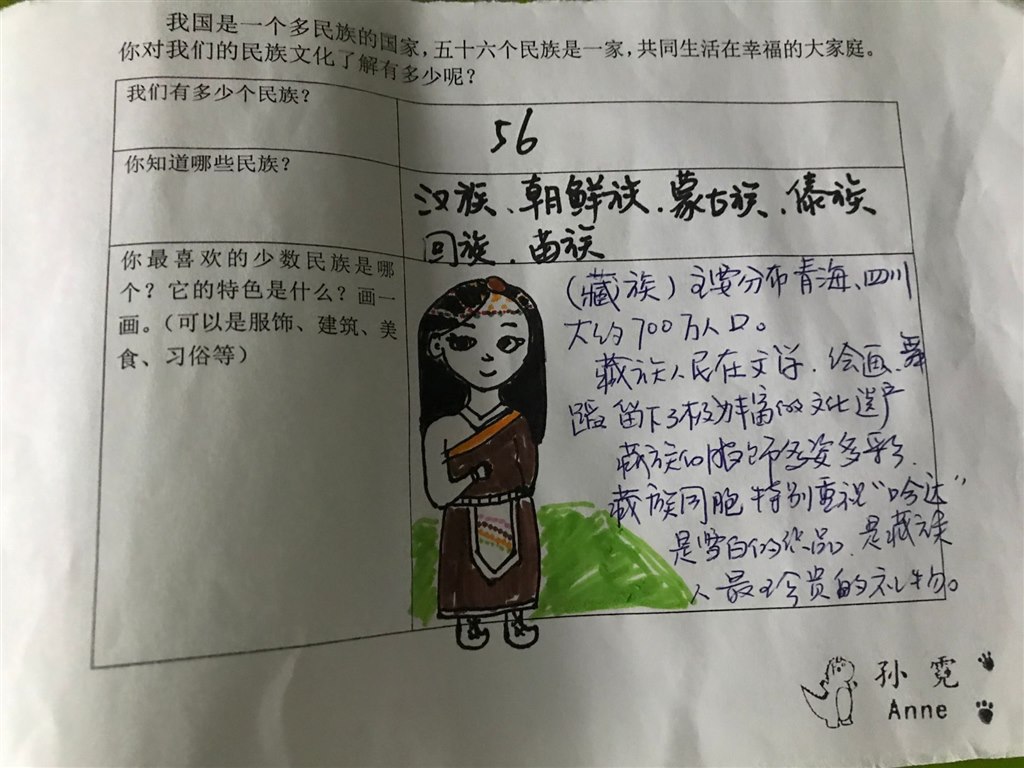 我国是一个多民族的国家，五十六个民族是一家，共同生活在幸福的大家庭。
你对我们的民族文化了解有多少呢？
我们有多少个民族？
56
你知道哪些民族？
汉族、朝鲜族、蒙古族、傣族
回族、苗族
你最喜欢的少数民族是哪
个？它的特色是什么？画一
画。（可以是服饰、建筑、美
食、习俗等）
（藏族）主要分布青海、四川
大约700万人口。
藏族人民在文学、绘画、舞
蹈留下了极为丰富的文化遗产
藏族的服饰多姿多彩.
藏族同胞特别重视“哈达”
是雪白的织品，是藏族
人最珍贵的礼物。
孙 霓
Anne